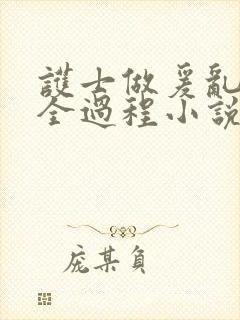 護士做爰亂
全過程小說
龐某負